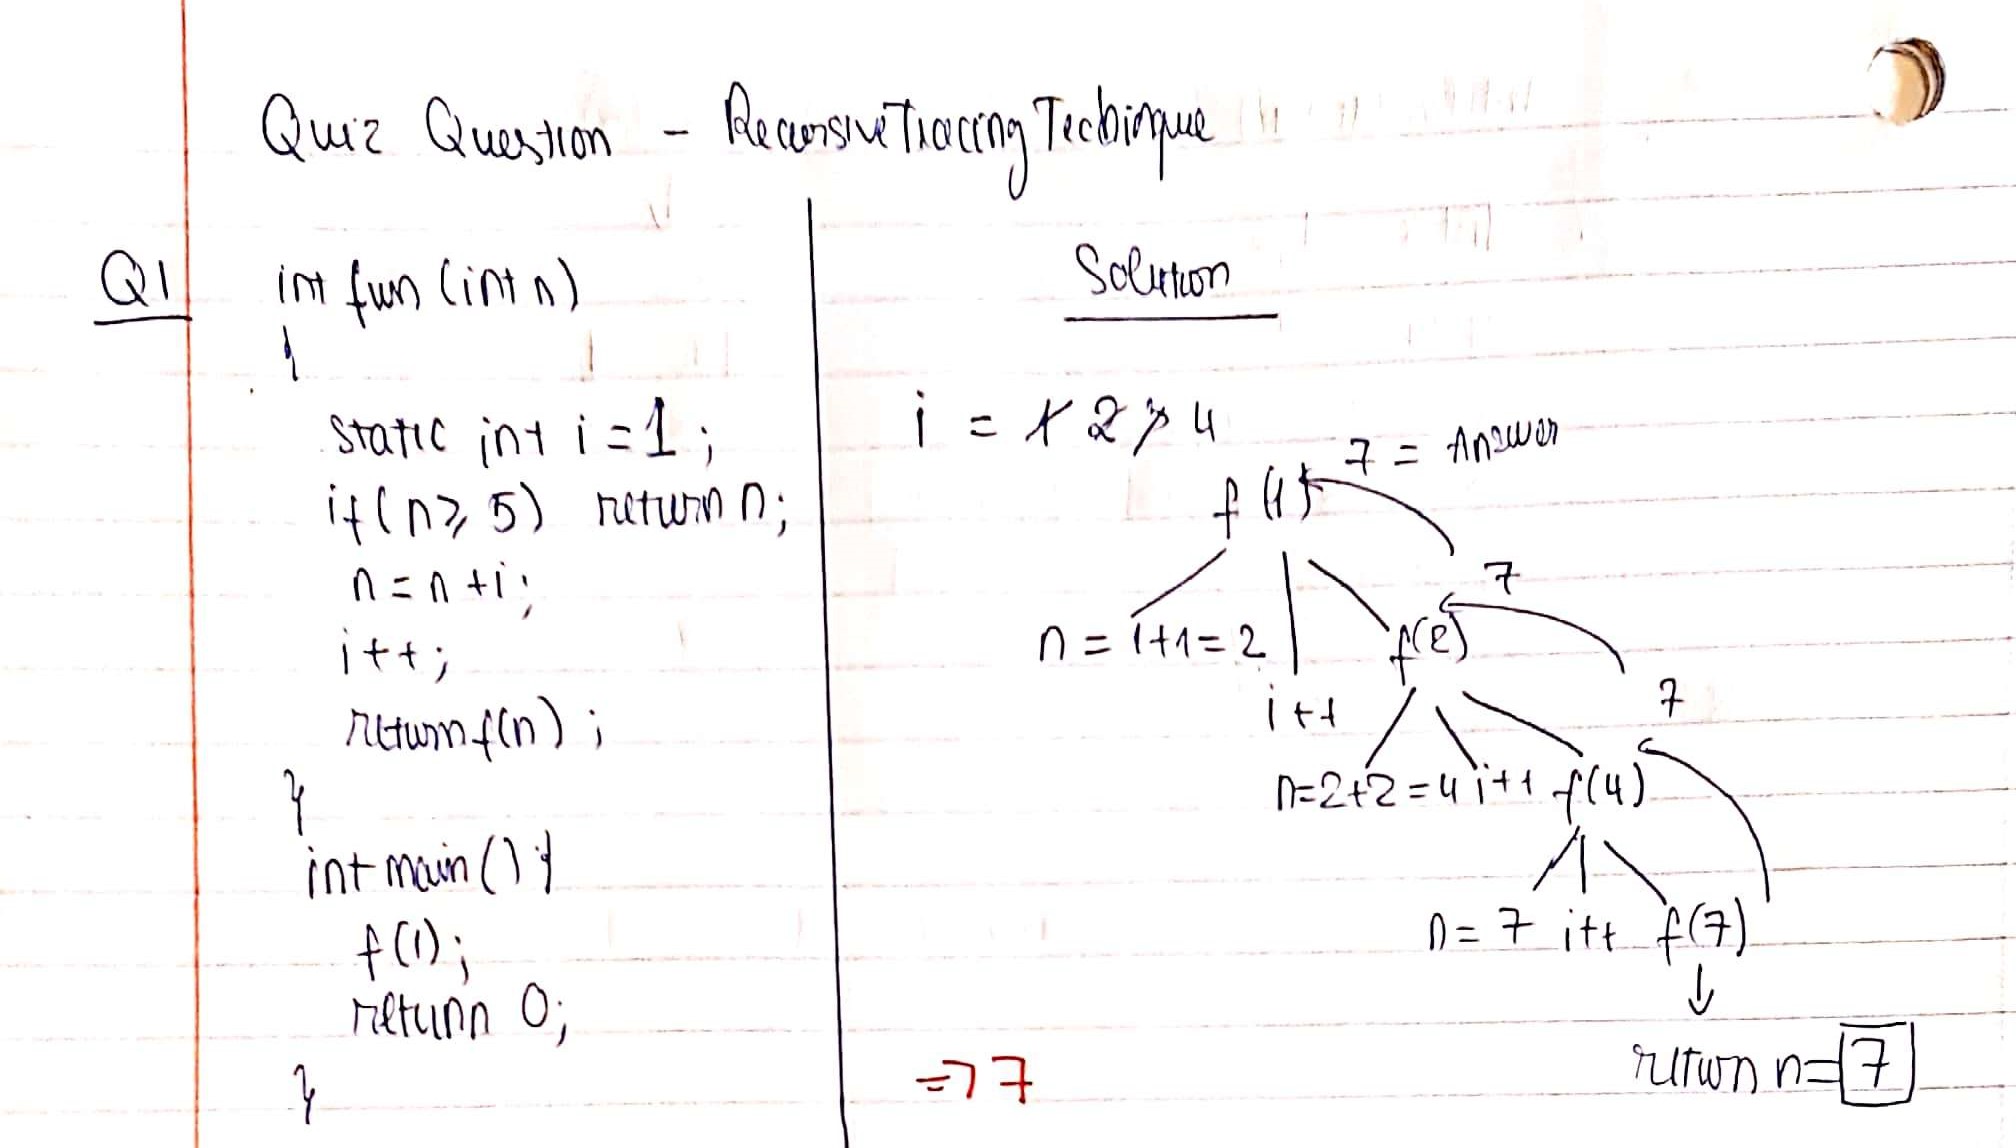 Quiz Question - Recursive Tracing Techinque
Q1
int fun (int n)
{
static int i = 1;
if(n ≥ 5) return n;
n = n + i;
i++;
return f(n);
}
int main() {
f(1);
return 0;
}
Solution
i = 1 2 3 4
7 = Answer
f(1)
7
n = 1+1 = 2
f(2)
i++
7
n=2+2=4 i++ f(4)
n = 7 i++ f(7)
↓
return n = 7
=> 7